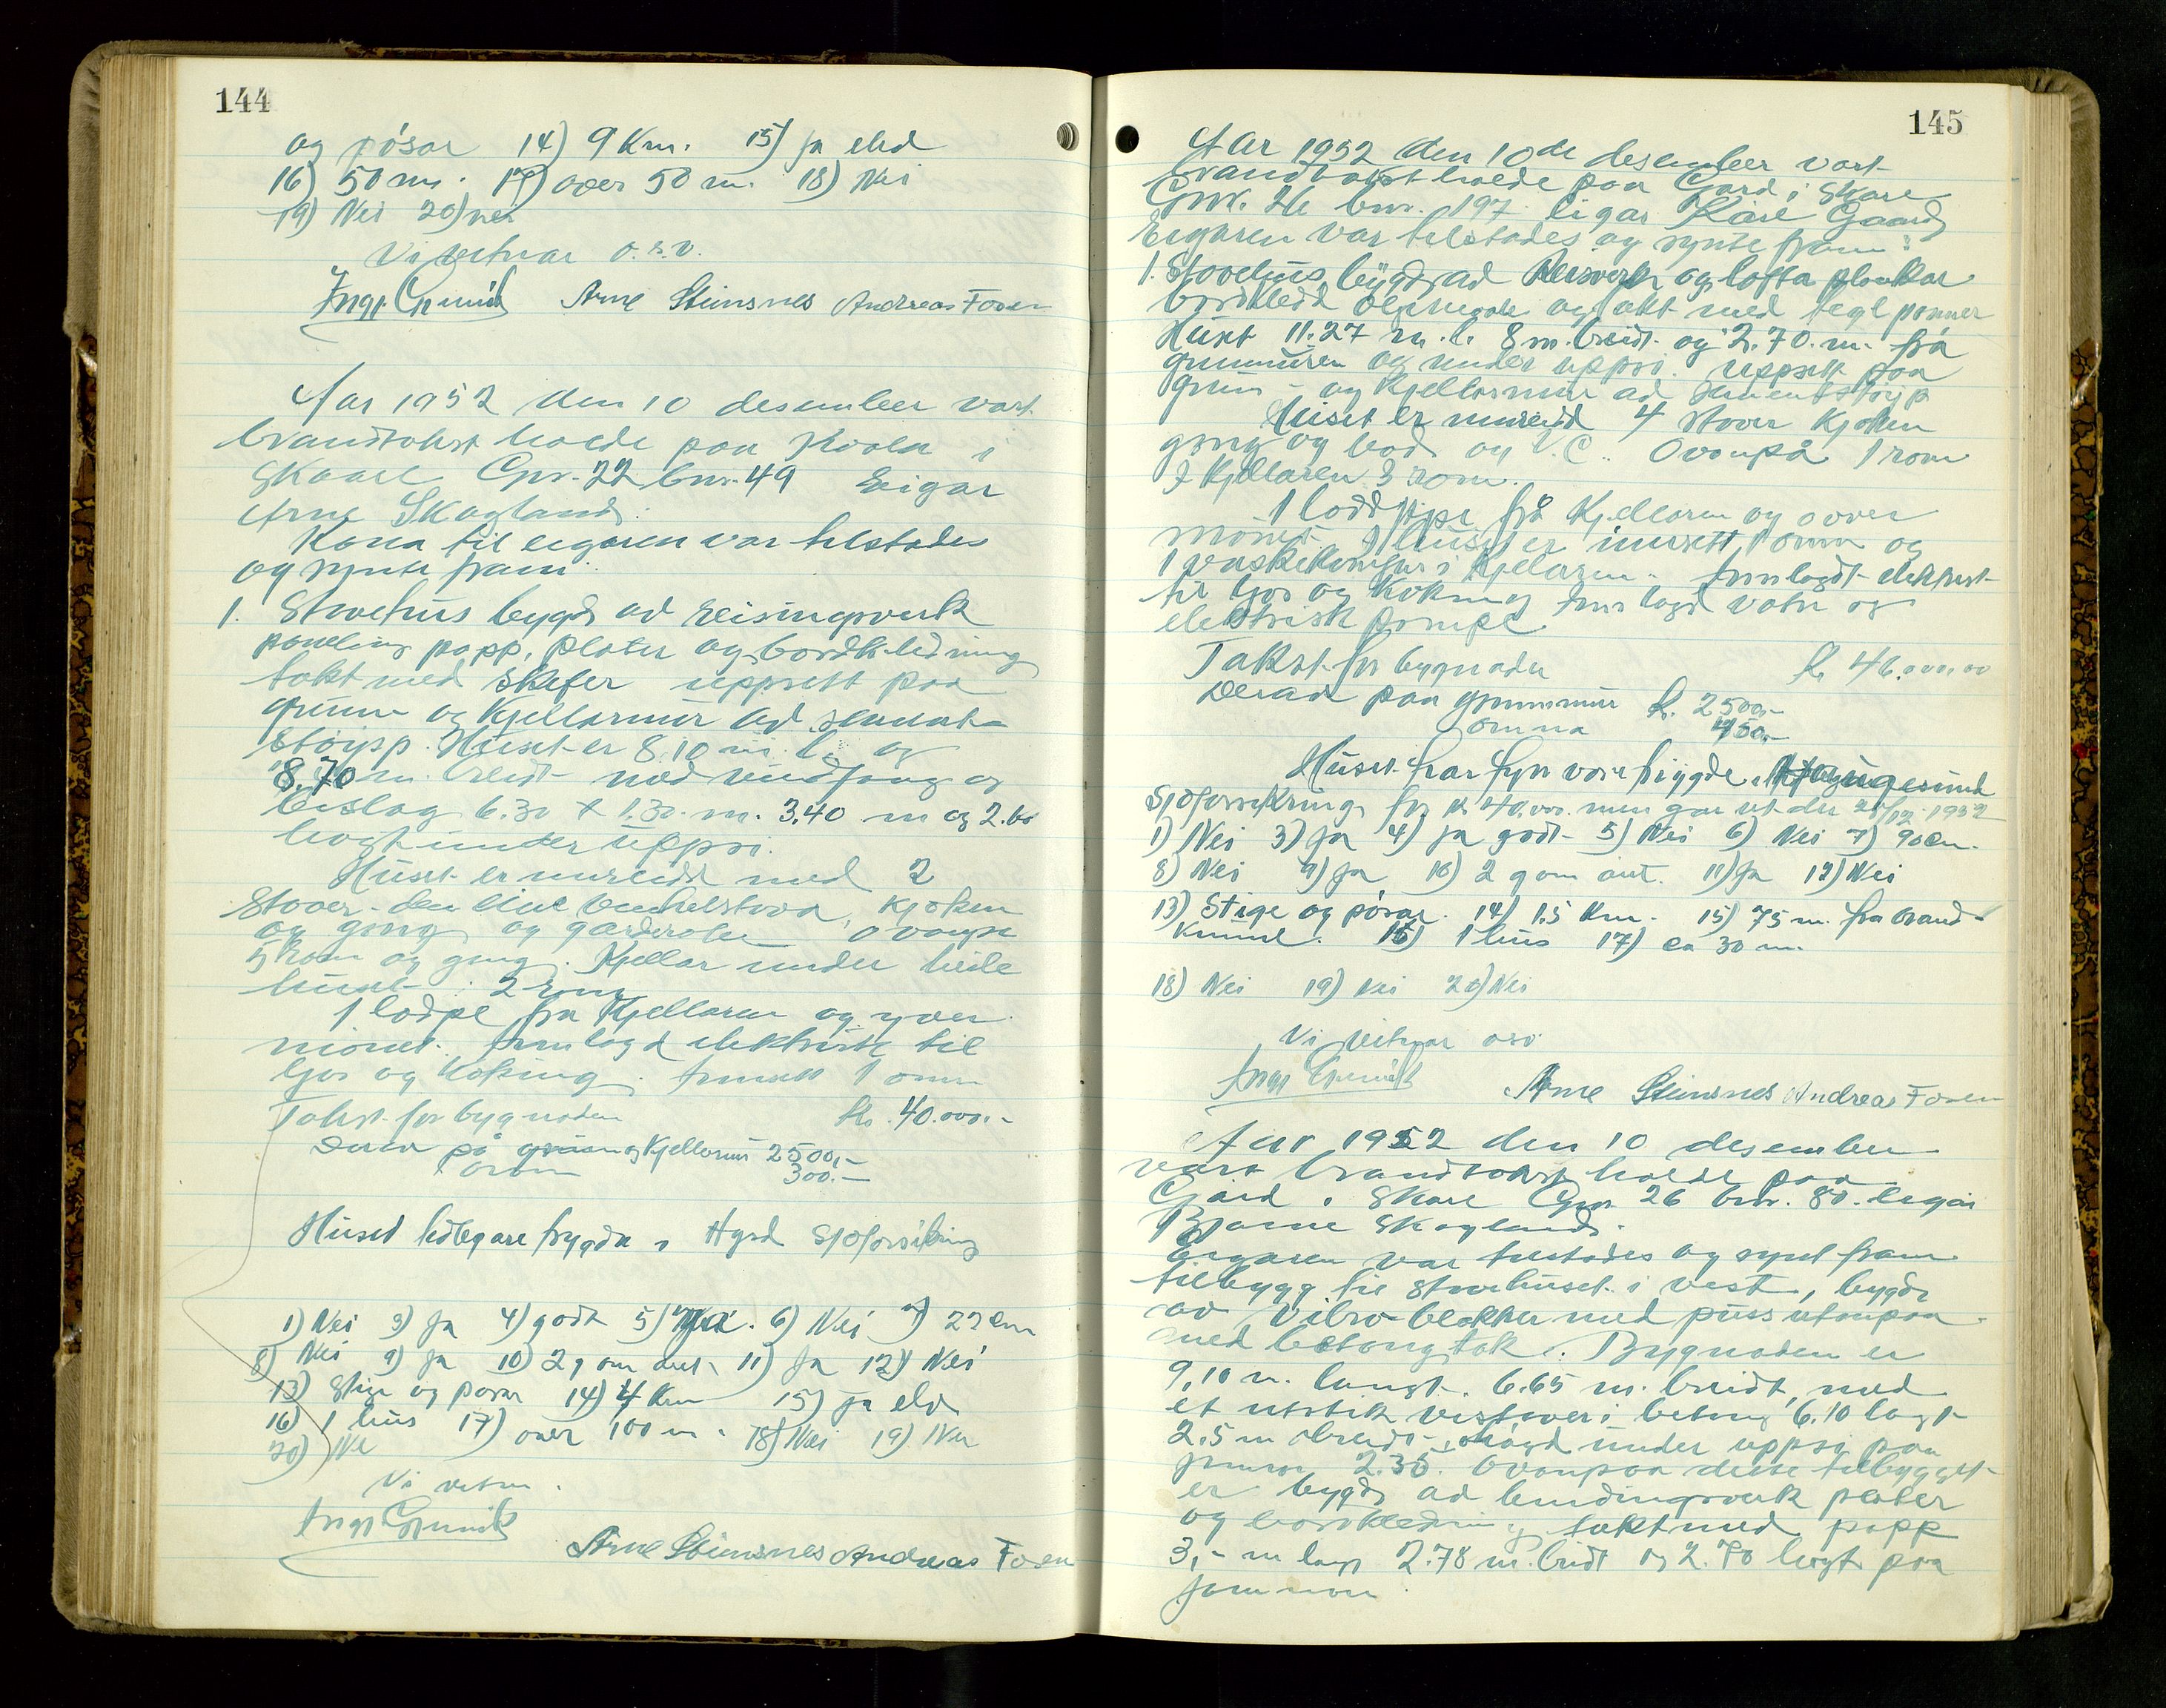 144
og pósar 14) 9 Km. 15) ja eld
16) 50 m. 17) over 50 m. 18) Nei
19) Nei 20) nei
Vi vitnar o.s.v.
Arne Steinsnes Andreas Fosen
Aar 1952 den 10 desember vart
brandtakst halde paa Kvala i
Skaare Gnr. 22 bnr. 49 Eigar
Arne Skogland.
Kona til eigaren var tilstades
og synte fram:
1. Stovehus bygd ad reisingsverk
paneling papp, plater og bordkledning
takt med skifer uppsett paa
grunn og Kjellarmur ad sement-
støypp. Huset er 8.10 m. l. og
8,70 m. breidt med vindfang og
bislag 6.30 x 1.30 m. 3.40 m og 2.60
høgt under uppsi.
Huset er innreidd med 2
stover - den eine enkelstova, kjøken
og gong og garderobe ovanpå
5 rom og gong. Kjellar under heile
huset. 2 rom
1 lodpe fra Kjellaren og yver
mønet. Innlagd elektrisk til
ljos og koking. Innsett 1 omn
Takst for bygnaden kr. 40.000.-
Derav på grunn og Kjellarmur 2500,-
1 omn 300.-
Huset tidlegare trygda i Hgsd Sjøforsikring
1) Nei 3) Ja 4) godt 5) Nei. 6) Nei 7) 22 cm
8) Nei 9) Ja 10) 2 g om året 11) Ja 12) Nei
13) Stige og posar 14) 4 Km 15) ja eld
16) 1 hus 17) over 100 m. 18) Nei 19) Nei
20) Nei
Vi vitnar.
Arne Steinsnes Andreas Fosen
145
Aar 1952 den 10de desember vart
brandtakst halde paa Gard i Skare
Gnr. 26 bnr. 197 eigar Kåre Gaard
Eigaren var tilstades og synte fram:
1. Stovehus bygd ad Reisverk og lofta plankar
bordkledd og takt med teglpanner
Huset 11.27 m. l. 8 m. breidt og 2.70 m. frå
grunnmuren og under uppsi. uppsett paa
grunn- og Kjellarmur ad sementstøyp
Huset er innreidd 4 stover Kjøken
gong og bad og V.C. Ovanpå 1 rom
I Kjellaren 3 rom.
1 loddpipe frå Kjellaren og over
mønet. I huset er innsett 1 omn og
1 vaskekomfur i Kjellaren. Innlagdt elektrisk
til ljos og koking Innlagd vatn og
elektrisk pumpe
Takst for bygnaden kr. 46.000,00
Derad paa grunnmur kr. 2500,-
omna 450,-
Huset har fyr vore trygde i Haugesund
Sjøforsikring for kr 40.000. men gar ut den 28/12-1952
1) Nei 3) Ja 4) Ja godt 5) Nei 6) Nei 7) 90 cm.
8) Nei 9) Ja 10) 2 g om året. 11) Ja 12) Nei
13) Stige og pósar. 14) 1.5 Km. 15) 75 m. fra brand-
kumme. 16) 1 hus 17) ca 30 m.
18) Nei 19) Nei 20) Nei
Vi vitnar osv
Arne Steinsnes Andreas Fosen
Aar 1952 den 10 desember
vart brandtakst halde paa
Gard i Skare Gnr. 26 bnr. 80. eigar
Bjarne Skogland.
Eigaren var tilstades og synt fram
tilbygg til stovehuset i vest, bygde
av Vibro-blokker med puss utanpaa
med betongtak. Bygnaden er
9,10 m. langt. 6.65 m. breidt, med
et utstikk vestover i betong 6.10 langt
2.5 m breidt, høgd under uppsi paa
2.35. Ovanpaa dette tilbygget
er bygd ad bindingsverk plater
og bordkledning takt med papp
3,- m lang 2.78 m. breidt og 2.70 høgt paa